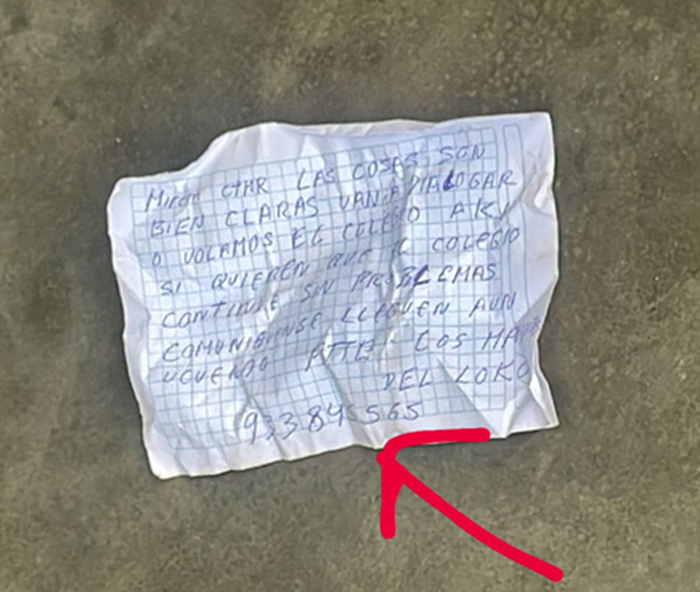 Miren CTMR LAS COSAS SON
BIEN CLARAS VAN A DIALOGAR
O VOLAMOS EL COLEGIO AKI
SI QUIEREN QUE EL COLEGIO
CONTINUE SIN PROBLEMAS
COMUNIQUENSE LLEGUEN AUN
ATTE- LOS
DEL LOKO
933845565